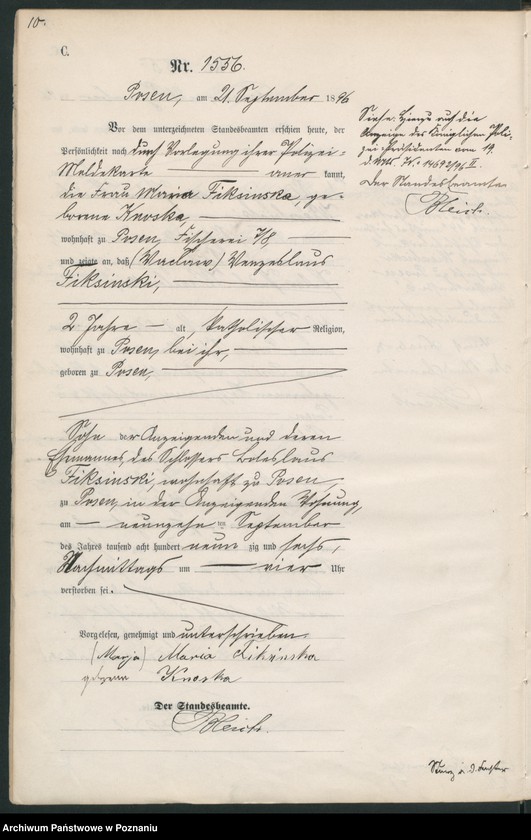 10.
C.
Nr. 1556.
Posen, am 21. September 1896
Vor dem unterzeichneten Standesbeamten erschien heute, der
Persönlichkeit nach durch Vorlegung ihrer Polizei-
Meldekarte — aner kannt,
die Frau Maria Fiksinska, ge-
borene Knoska,
wohnhaft zu Posen, Fischerei 7/8
und zeigte an, daß (Waclaw) Wenzeslaus
Fiksinski,
2 Jahre — alt, katholischer Religion,
wohnhaft zu Posen, bei ihr,
geboren zu Posen,
Sohn der Anzeigenden und deren
Ehemannes, des Schlossers Boleslaus
Fiksinski, wohnhaft zu Posen
zu Posen, in der Anzeigenden Wohnung,
am — neunzehn ten September
des Jahres tausend acht hundert neun zig und sechs,
Nachmittags um — vier Uhr
verstorben sei.
Vorgelesen, genehmigt und unterschrieben
(Marja) Maria Fiksinska
geborene Knoska
Der Standesbeamte.
Bleich.
Siehe: auf die
Anzeige der Königlichen Poli-
zei-Präsidenten vom 19.
d. Mts. Nr. 14692/96 II.
Der Standesbeamte
Bleich.
Archiwum Państwowe w Poznaniu